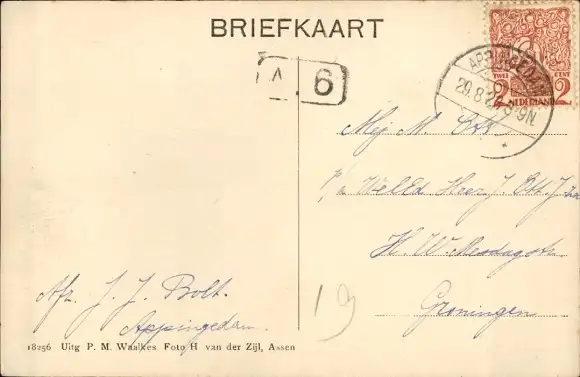 BRIEFKAART
A 6
TWEE CENT
2 NEDERLAND 2
APPINGEDAM
29.8.2 8-9N
Mej M.
p/a WelEd Heer J. J.
H. W. Mesdagstr
Groningen
Afz. J. J. Bolt.
Appingedam.
19
18256 Uitg P. M. Waalkes Foto H van der Zijl, Assen